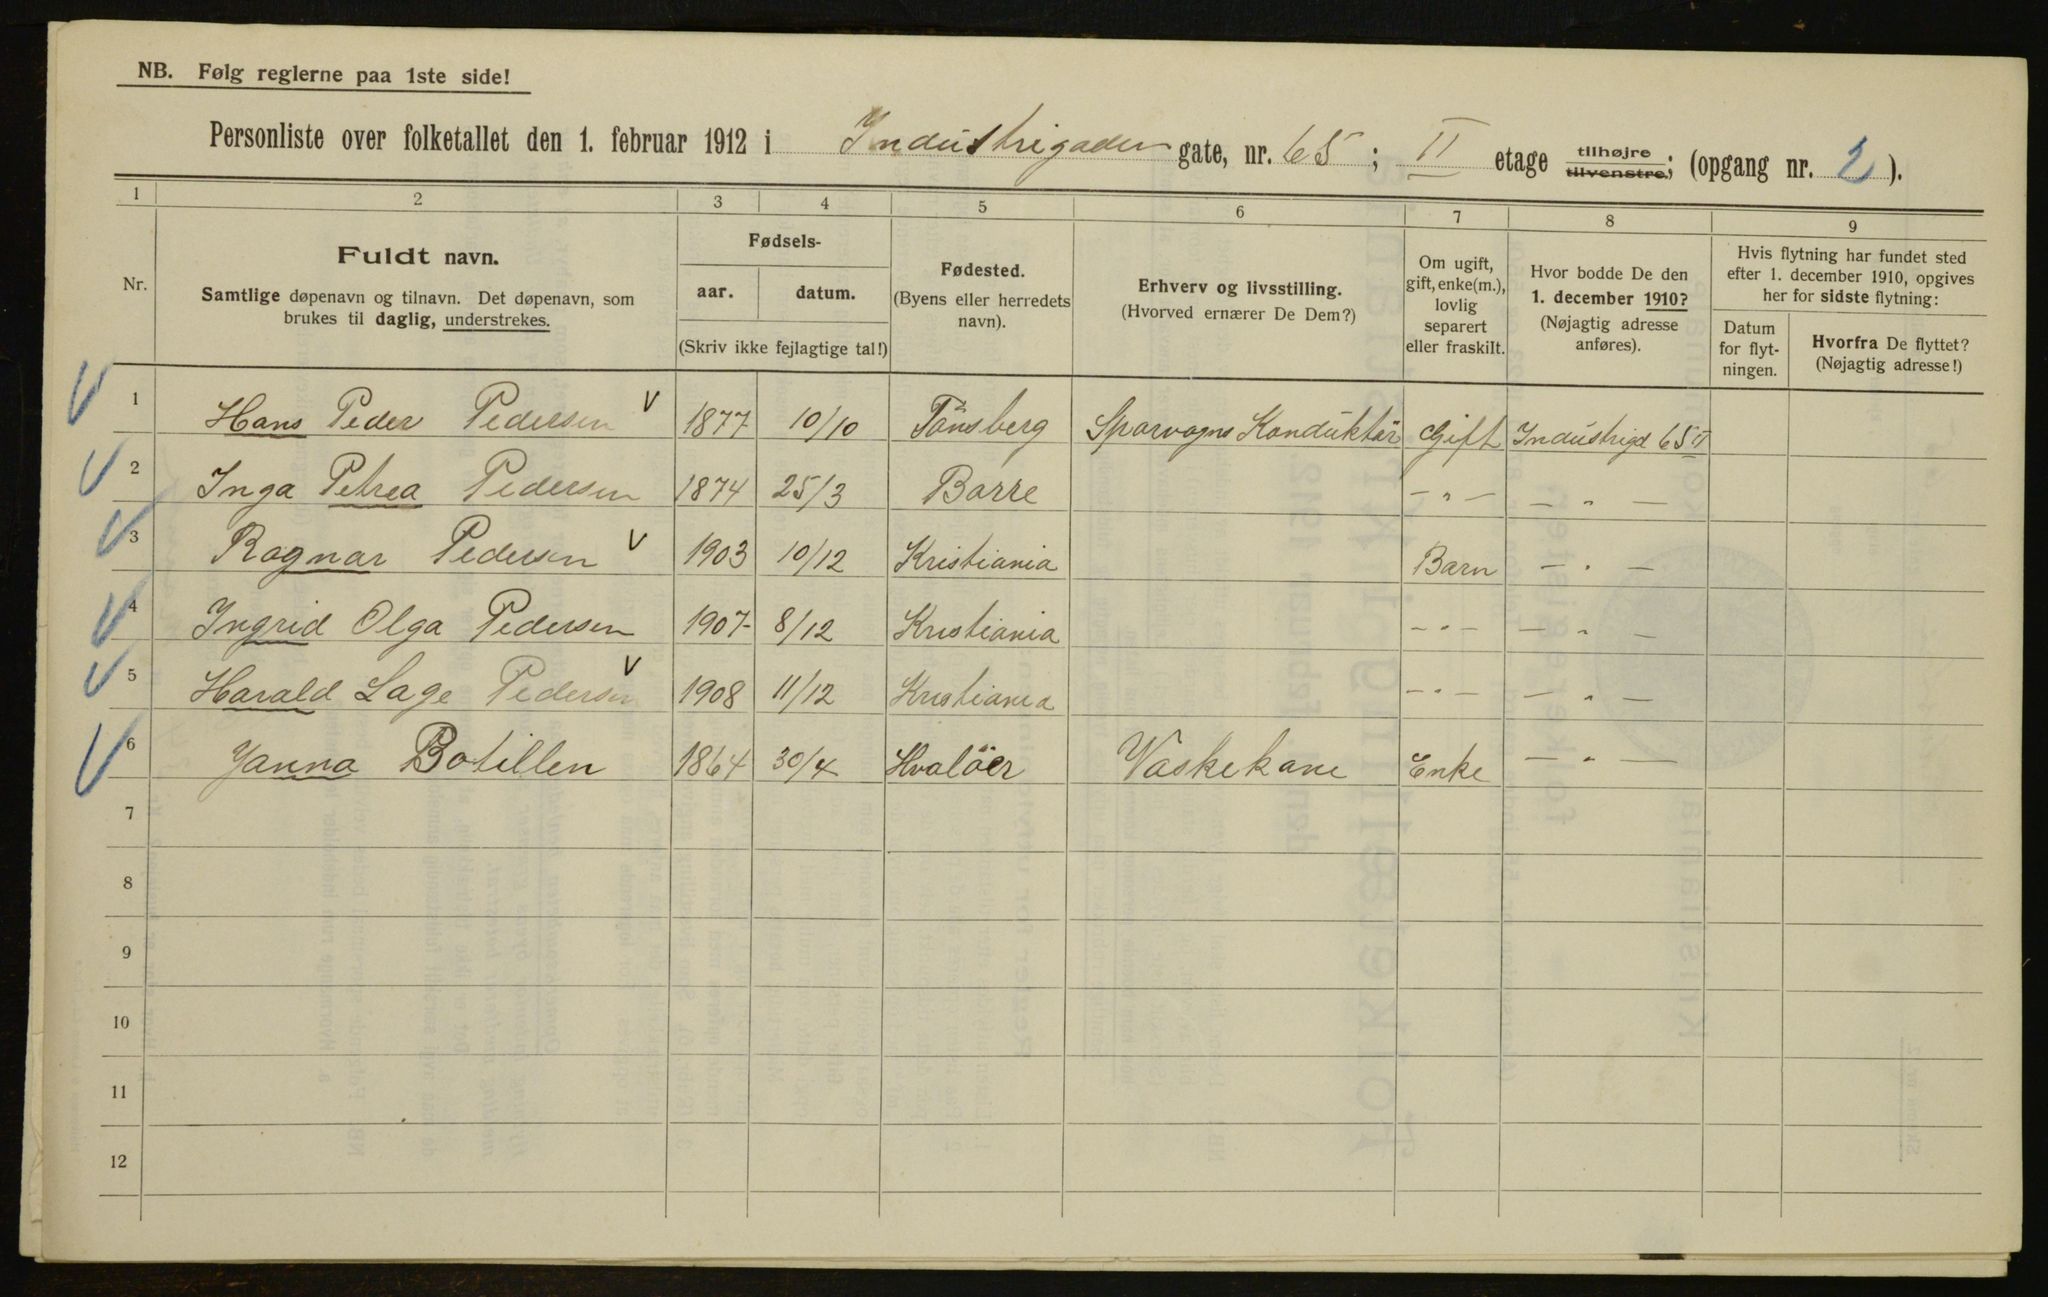 NB. Følg reglerne paa 1ste side!
Personliste over folketallet den 1. februar 1912 i Industrigaden gate, nr. 65; II etage tilhøjre tilvenstre; (opgang nr. 2).
1 2 3 4 5 6 7 8 9
Nr.
Fuldt navn.
Samtlige døpenavn og tilnavn. Det døpenavn, som
brukes til daglig, understrekes.
Fødsels-
aar. datum.
(Skriv ikke fejlagtige tal!)
Fødested.
(Byens eller herredets
navn).
Erhverv og livsstilling.
(Hvorved ernærer De Dem?)
Om ugift,
gift, enke(m.),
lovlig
separert
eller fraskilt.
Hvor bodde De den
1. december 1910?
(Nøjagtig adresse
anføres).
Hvis flytning har fundet sted
efter 1. december 1910, opgives
her for sidste flytning:
Datum
for flyt-
ningen.
Hvorfra De flyttet?
(Nøjagtig adresse!)
1 Hans Peder Pedersen V 1877 10/10 Tönsberg Sporvogns Konduktör Gift Industrigd 65 II
2 Inga Petrea Pedersen 1874 25/3 Borre — " — — " —
3 Ragnar Pedersen V 1903 10/12 Kristiania Barn — " —
4 Ingrid Olga Pedersen 1907 8/12 Kristiania — " — — " —
5 Harald Lage Pedersen V 1908 11/12 Kristiania — " — — " —
6 Janna Botillen 1864 30/4 Hvalöer Vaskekone Enke — " —
7
8
9
10
11
12